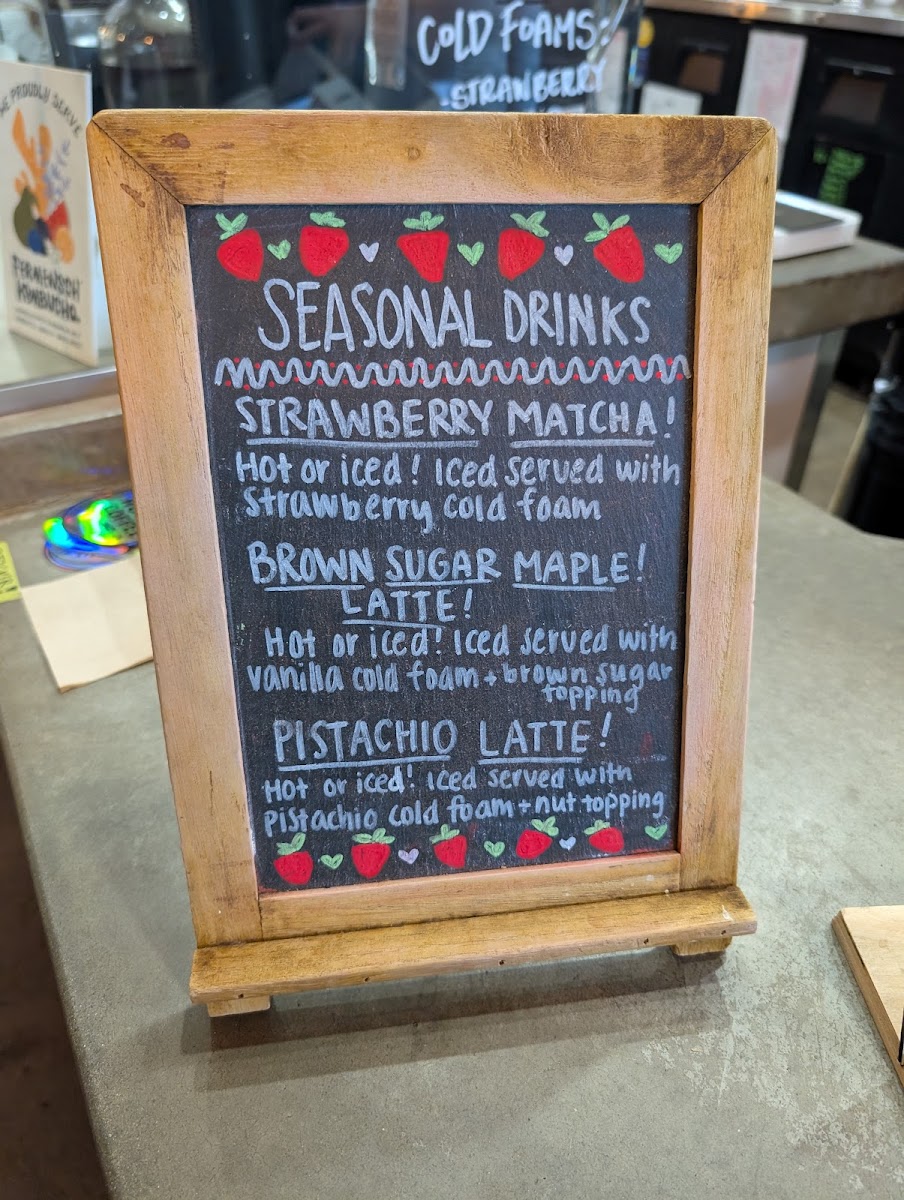 COLD FOAMS:
-STRAWBERRY
WE PROUDLY SERVE
FERMENSCH
KOMBUCHA
SEASONAL DRINKS
STRAWBERRY MATCHA!
Hot or iced! Iced served with
strawberry cold foam
BROWN SUGAR MAPLE!
LATTE!
Hot or iced! Iced served with
vanilla cold foam + brown sugar
topping
PISTACHIO LATTE!
Hot or iced! Iced served with
pistachio cold foam + nut topping